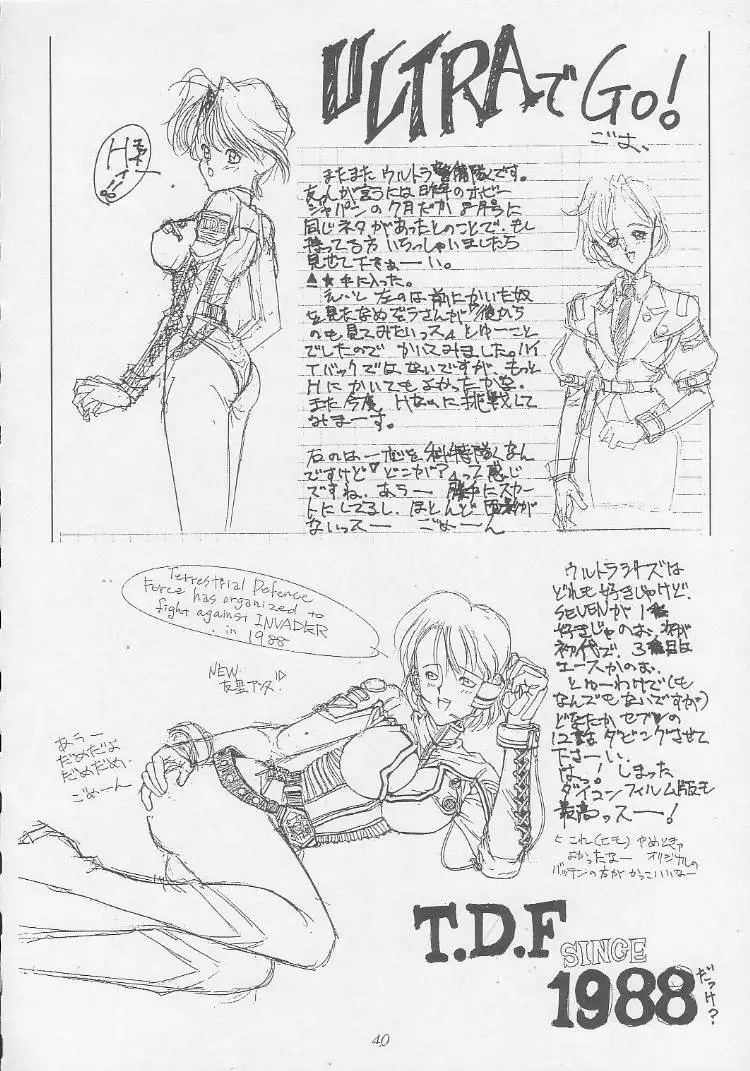 ULTRAでGo!
ごよ、
Hィ!!
またまたウルトラ警備隊です。
友人が言うには昨年のホビー
ジャパンの7月だか8月号に
同じネタがあったとのことで、もし
持ってる方いらっしゃいましたら
見せて下さぁーい。
▲★手に入った。
えーと左のは前にかいた奴
を見たなめぞうさんが「後から
のも見てみたいっス」とゆーこと
でしたのでかいてみました。ハイ
レバックではないですが、もっと
Hにかいてもよかったかな。
また今度、Hなのに挑戦して
みまーす。
右のは一応科特隊なん
ですけど「どこが?」って感じ
ですね。あうー 勝手にスカー
トにしてるし、ほとんど面影が
ないっスー ごめーん
Terrestrial Defence
Force has organized to
fight against INVADER
in 1988
NEW
友里アンヌ!
あうー
だめだよ
だめだめだめ、
ごめーん
ウルトラシリーズは
どれも好きじゃけど、
SEVENが1番
好きじゃのぉ、次が
初代で、3番目は
エースかのぉ、
とゆーわけで(も
なんでもないですが)
どなたかセブンの
12話ダビングさせて
下さーい。
はっ!しまった
ダイコンフィルム版も
最高っスー!
これ(ヒモ)やめときゃ
よかったなー オリジナルの
バッテンの方がかっこいいなー
T.D.F
SINCE
1988
だっけ?
40